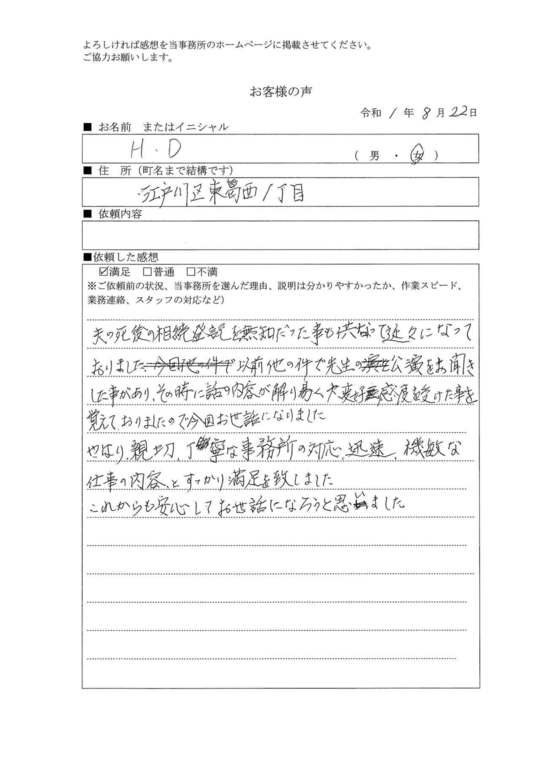 よろしければ感想を当事務所のホームページに掲載させてください。
ご協力お願いします。
お客様の声
令和 1 年 8 月 22日
■ お名前 またはイニシャル
H・D
( 男 ・ 女 )
■ 住 所（町名まで結構です）
江戸川区東葛西1丁目
■ 依頼内容
■依頼した感想
☑満足 □普通 □不満
※ご依頼前の状況、当事務所を選んだ理由、説明は分かりやすかったか、作業スピード、
業務連絡、スタッフの対応など）
夫の死後の相続登記を無知だった事も
って延々になって
おりました 今回他の件で 以前他の件で先生の 公演をお聞き
した事があり、その時に話の内容が解り易く大変好感度を受けた事を
覚えておりましたので今回お世話になりました
やはり、親切、丁寧な事務所の対応、迅速、機敏な
仕事の内容、とすっかり満足を致しました
これからも安心してお世話になろうと思いました